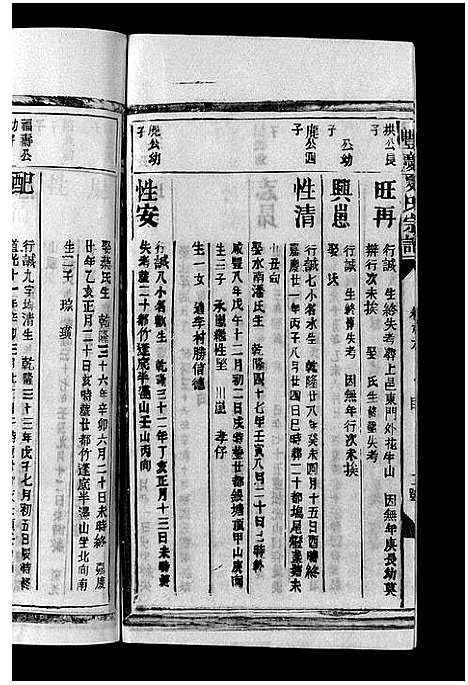 豐慶夏氏宗譜
長
子
旺再
行誠 生終失考葬上邑東門外花生山 因無年庚長幼莫
辨行次未挨 娶 氏生終葬失考
公幼
子
興崑
行誠 生終葬失考 因無年行次未挨
娶 氏
公四
子
性清
行誠七小名永生 乾隆廿八年癸未四月十五日酉時終
嘉慶廿一年丙子八月廿四日巳時葬二十都塢尾
娶水南潘氏生 乾隆四十七年壬寅八月二十日 時終
咸豐八年戊午十二月初二日戌時葬廿都 塘頂甲山庚向
生三子 永 繼性至 川嵐 孝仔
生一女 適李村勝信德
公幼
子
性安
行誠八小名歡生 乾隆三十二年丁亥正月十三日未時終
失考葬二十都竹篷底半濕山壬山丙向
娶葉氏生 乾隆三十六年辛卯六月二十日未時終 嘉慶
廿年乙亥正月二十日亥時葬廿都竹篷底半濕山坐北向南
生二子 琮 璜
福壽公
幼子
配
行誠九字均清生 乾隆三十三年戊子七月初五日 時終
道光十一年